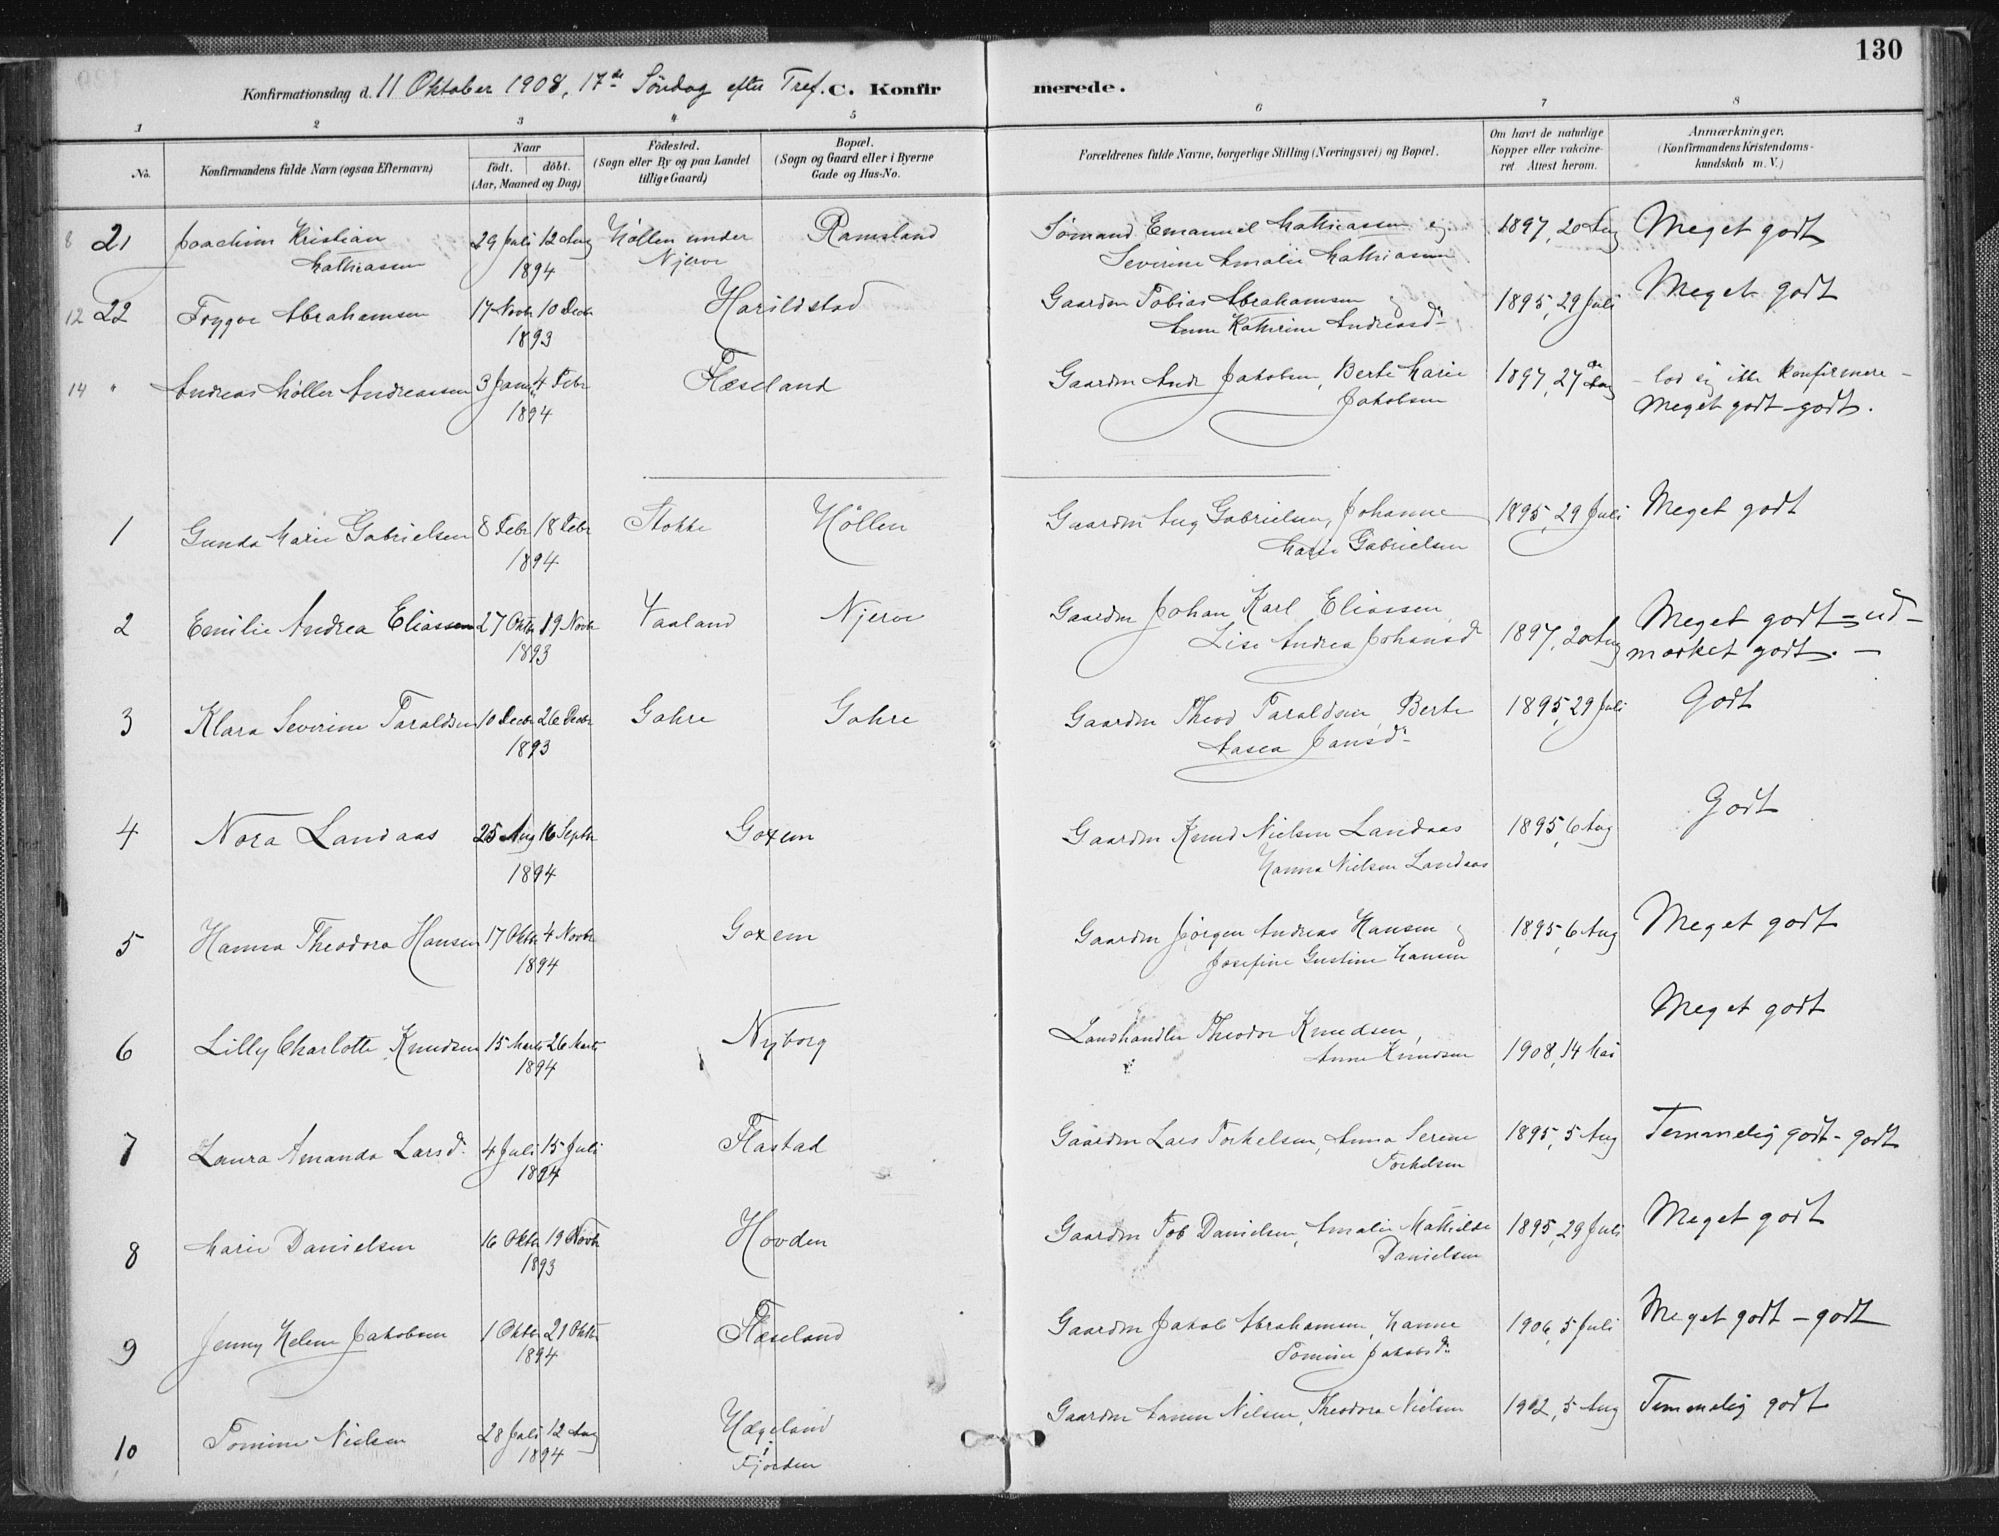 130
Konfirmationsdag d. 11 Oktober 1908, 17de Söndag efter Tref. C. Konfirmerede.
1 2 3 4 5 6 7 8
No. Konfirmandens fulde Navn (ogsaa Efternavn) Naar Födt. döbt. (Aar, Maaned og Dag) Födested. (Sogn eller By og paa Landet tillige Gaard) Bopæl. (Sogn og Gaard eller i Byerne Gade og Hus-No. Forældrenes fulde Navne, borgerlige Stilling (Næringsvei) og Bopæl. Om havt de naturlige Kopper eller vakcineret Attest herom. Anmærkninger. (Konfirmandens Kristendomskundskab m. V.)
8 21 Joachim Kristian 29 Juli 12 Aug Höllen under Ramsland Sömand Emanuel Mathiassen og 1897, 20 Aug Meget godt
Mathiassen 1894 Njerve Severine Amalie Mathiassen
12 22 Trygve Abrahamsen 17 Novbr 10 Decbr Harildstad Gaardm Tobias Abrahamsen og 1895, 29 Juli Meget godt
1893 Anne Kathrine Andreasd.
14 " Andreas Möller Andreassen 3 Jan 4 Febr Flæseland Gaardm Andr Jakobsen, Berte Marie 1897, 27 Aug - lod sig ikke konfirmere -
1894 Jakobsen Meget godt - godt.
1 Gunda Marie Gabrielsen 8 Febr 18 Febr Stokke Höllen Gaardm Aug Gabrielsen, Johanne 1895, 29 Juli Meget godt
1894 Marie Gabrielsen
2 Emilie Andrea Eliassen 27 Oktbr 19 Novbr Vaaland Njerve Gaardm Johan Karl Eliassen, 1897, 20 Aug Meget godt - ud-
1893 Lise Andrea Johansd. mærket godt. -
3 Klara Severine Taraldsen 10 Decbr 26 Decbr Gahre Gahre Gaardm Theod Taraldsen, Berte 1895, 29 Juli Godt
1893 Aasea Jansd.
4 Nora Landaas 25 Aug 16 Septbr Goxem Gaardm Knud Nielsen Landaas 1895, 6 Aug Godt
1894 Hanna Nielsen Landaas
5 Hanna Theodora Hansen 17 Oktbr 4 Novbr Goxem Gaardm Jörgen Andreas Hansen og 1895, 6 Aug Meget godt
1894 Josefine Gustine Hansen
6 Lilly Charlotte Knudsen 15 Marts 26 Marts Nyborg Landhandler Theodor Knudsen, 1908, 14 Mai Meget godt
1894 Anne Knudsen
7 Laura Amanda Larsd. 4 Juli 15 Juli Flastad Gaardm Lars Torkelsen, Anna Serene 1895, 5 Aug Temmelig godt - godt
1894 Torkelsen
8 Marie Danielsen 16 Oktbr 19 Novbr Hovden Gaardm Tob Danielsen, Amalie Mathilde 1895, 29 Juli Meget godt
1893 Danielsen
9 Jenny Helene Jakobsen 1 Oktbr 21 Oktbr Flæseland Gaardm Jakob Abrahamsen, Hanne 1906, 5 Juli Meget godt - godt
1894 Tomine Jakobsd.
10 Tomine Nielsen 28 Juli 12 Aug Hægeland Gaardm Nilsen, Theodora Nielsen 1902, 5 Aug Temmelig godt
1894 i Fjorden